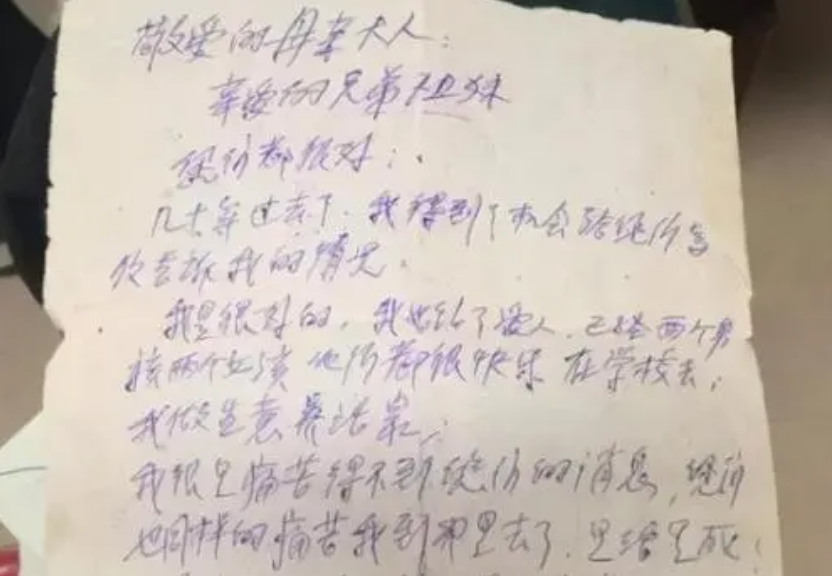 敬爱的母亲大人：
亲爱的兄弟姐妹
您们都很好：
几十年过去了．我得到了机会给您们写
信告诉我的情况．
我是很好的，我也结了爱人．已经两个男
孩两个女孩 他们都很快乐 在学校去，
我做生意养活家．
我很是痛苦得不到您们的消息，您们
也同样的痛苦我到那里去了．是活是死；